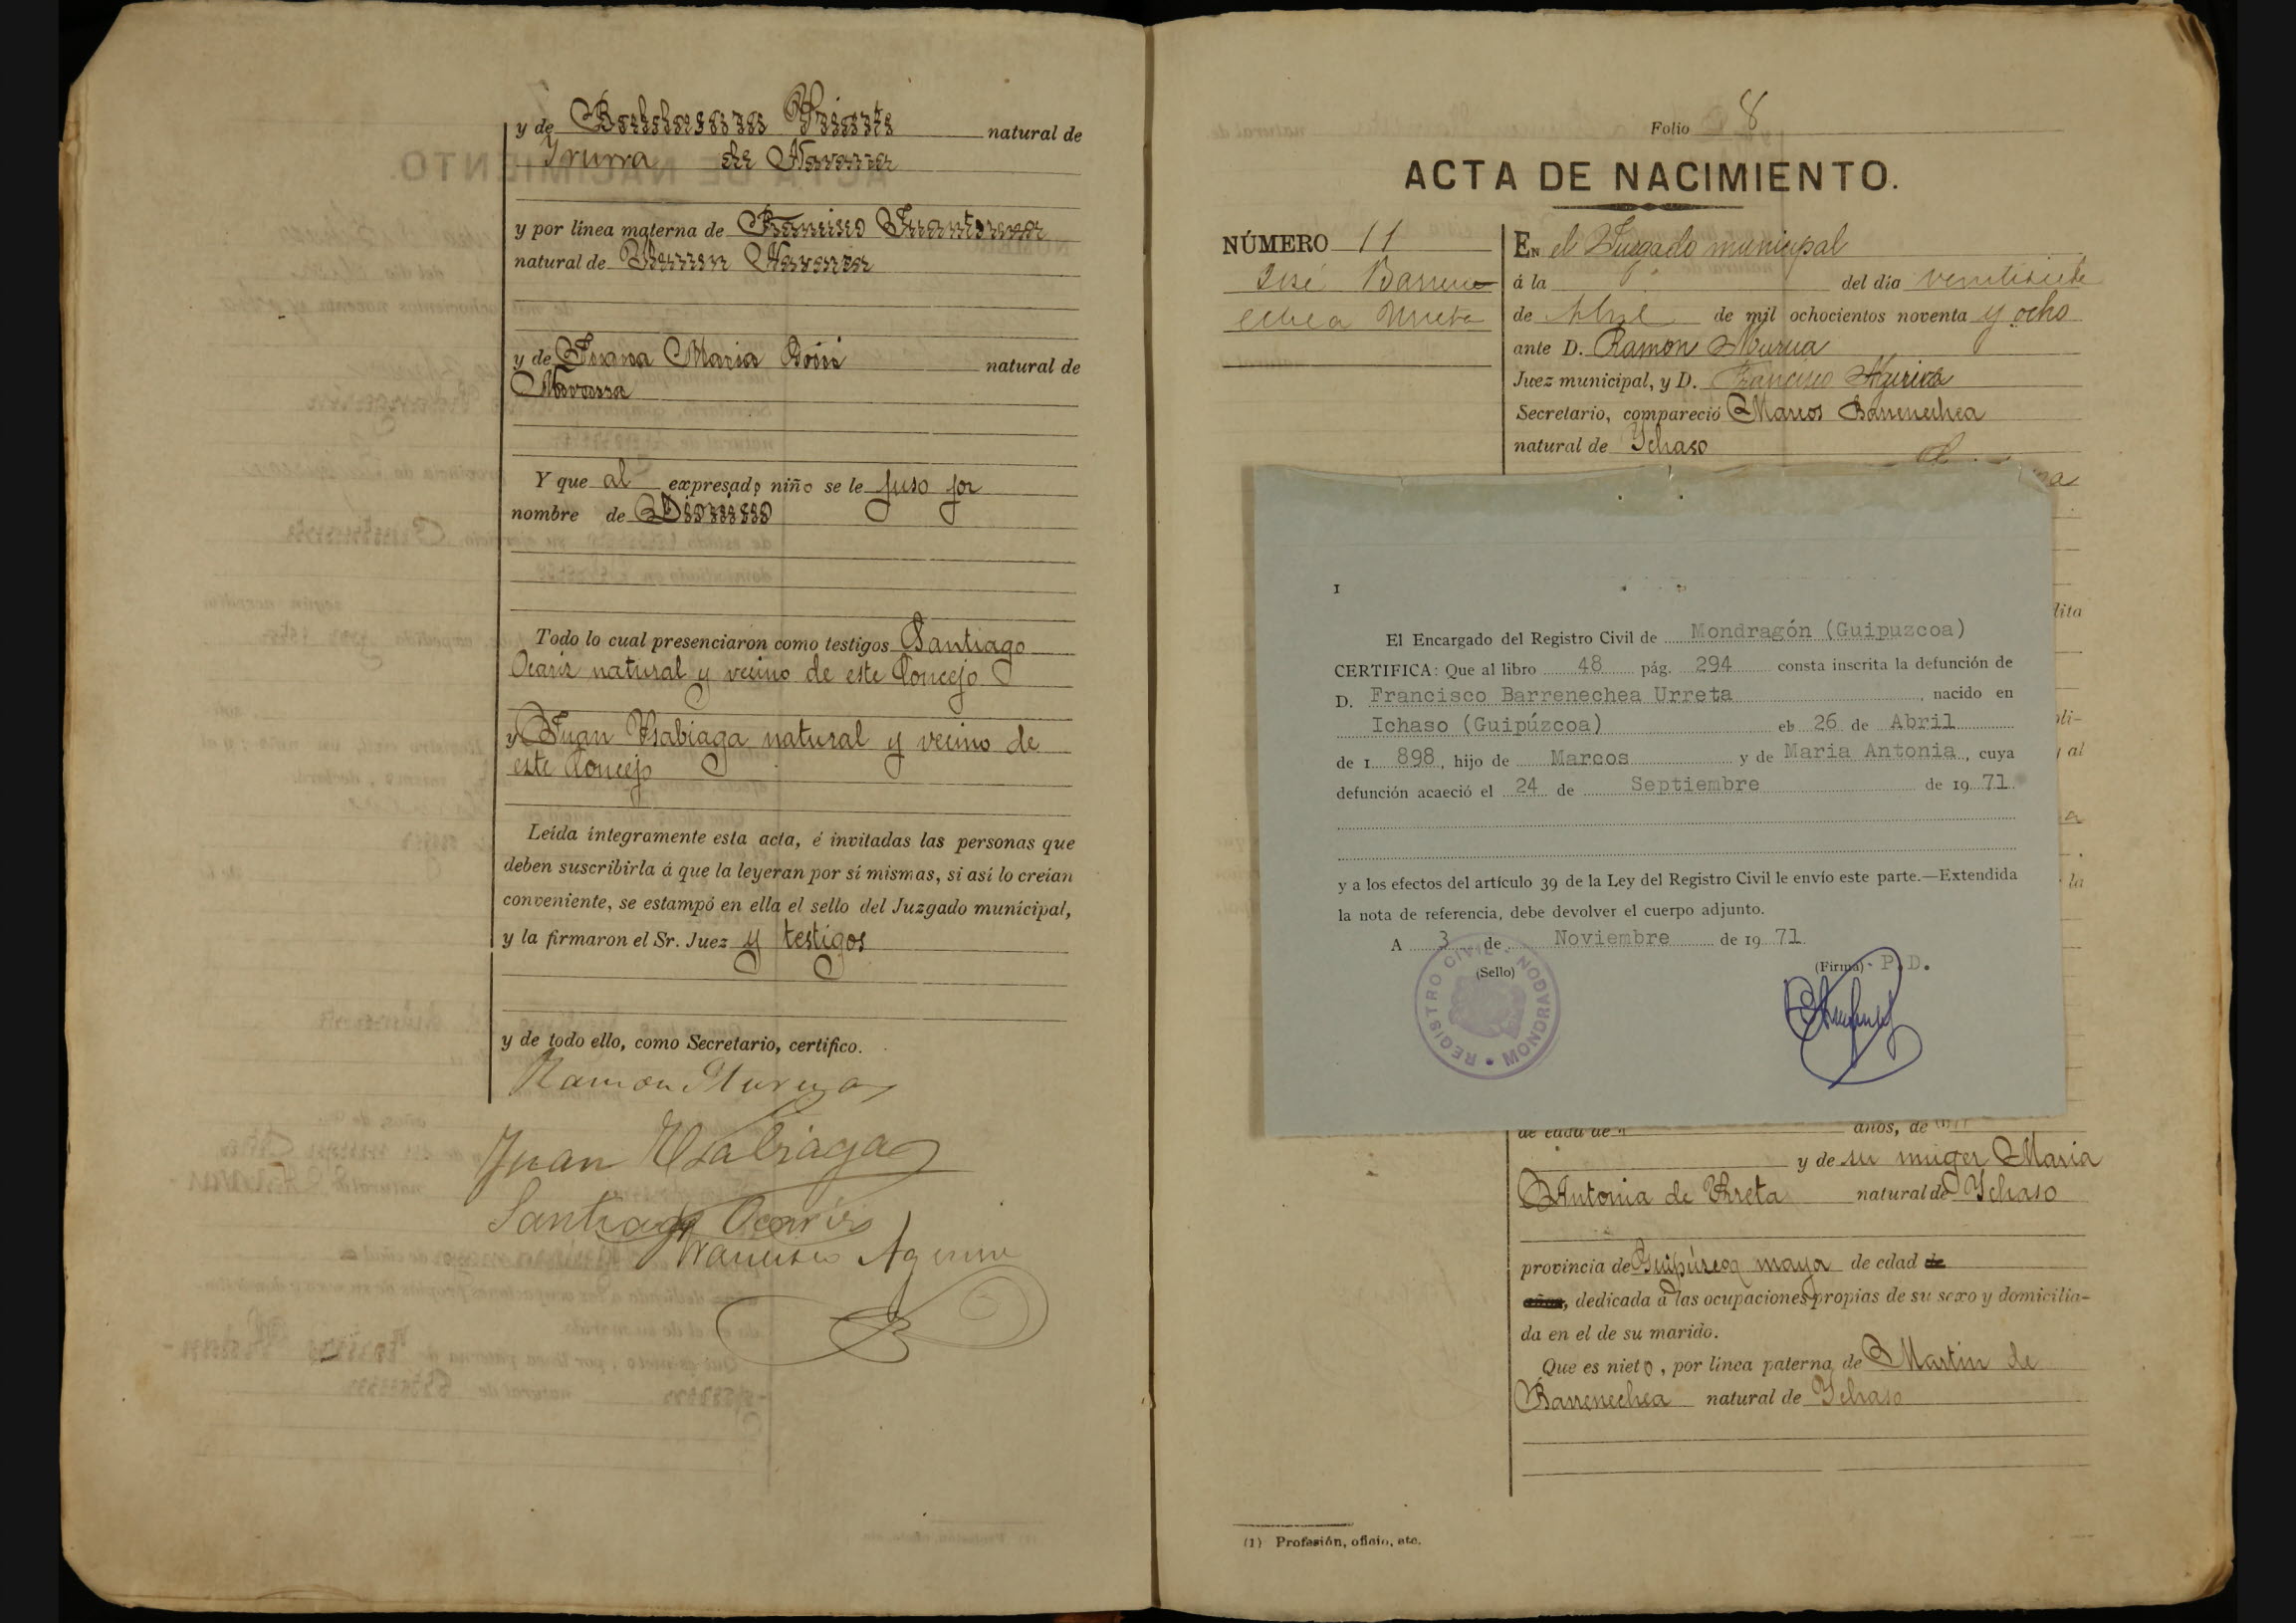 y de Baldasara Yriarte natural de
Yrurra de Navarra
y por línea materna de Francisco Juantorena
natural de Navarra
y de Juana Maria natural de
Navarra
Y que al expresado niño se le puso por
nombre de Dionisio
Todo lo cual presenciaron como testigos Santiago
Ocariz natural y vecino de este Concejo
y Juan Ysabiaga natural y vecino de
este Concejo
Leída íntegramente esta acta, é invitadas las personas que
deben suscribirla á que la leyeran por sí mismas, si así lo creían
conveniente, se estampó en ella el sello del Juzgado municipal,
y la firmaron el Sr. Juez y testigos
y de todo ello, como Secretario, certifico.
Ramon Murua
Juan Ysabiaga
Santiago Ocariz
Francisco Aguirre
Folio 8
ACTA DE NACIMIENTO.
NÚMERO 11
José Barrene
chea Urreta
EN el Juzgado municipal
á la del día ventisiete
de Abril de mil ochocientos noventa y ocho
ante D. Ramon Murua
Juez municipal, y D. Francisco Aguirre
Secretario, compareció Marcos Barrenechea
natural de Ychaso
1
El Encargado del Registro Civil de Mondragón (Guipuzcoa)
CERTIFICA: Que al libro 48 pág. 294 consta inscrita la defunción de
D. Francisco Barrenechea Urreta, nacido en
Ichaso (Guipúzcoa) eb 26 de Abril
de 1 898, hijo de Marcos y de Maria Antonia, cuya
defunción acaeció el 24 de Septiembre de 19 71
y a los efectos del artículo 39 de la Ley del Registro Civil le envío este parte.—Extendida
la nota de referencia, debe devolver el cuerpo adjunto.
A 3 de Noviembre de 19 71
(Sello)
(Firma) P.D.
REGISTRO CIVIL • MONDRAGON
de edad de años, de
y de su muger Maria
Antonia de Urreta natural de Ychaso
provincia de Guipúzcoa mayor de edad de
años, dedicada á las ocupaciones propias de su sexo y domicilia-
da en el de su marido.
Que es nieto, por línea paterna, de Martin de
Barrenechea natural de Ychaso
(1) Profesión, oficio, etc.